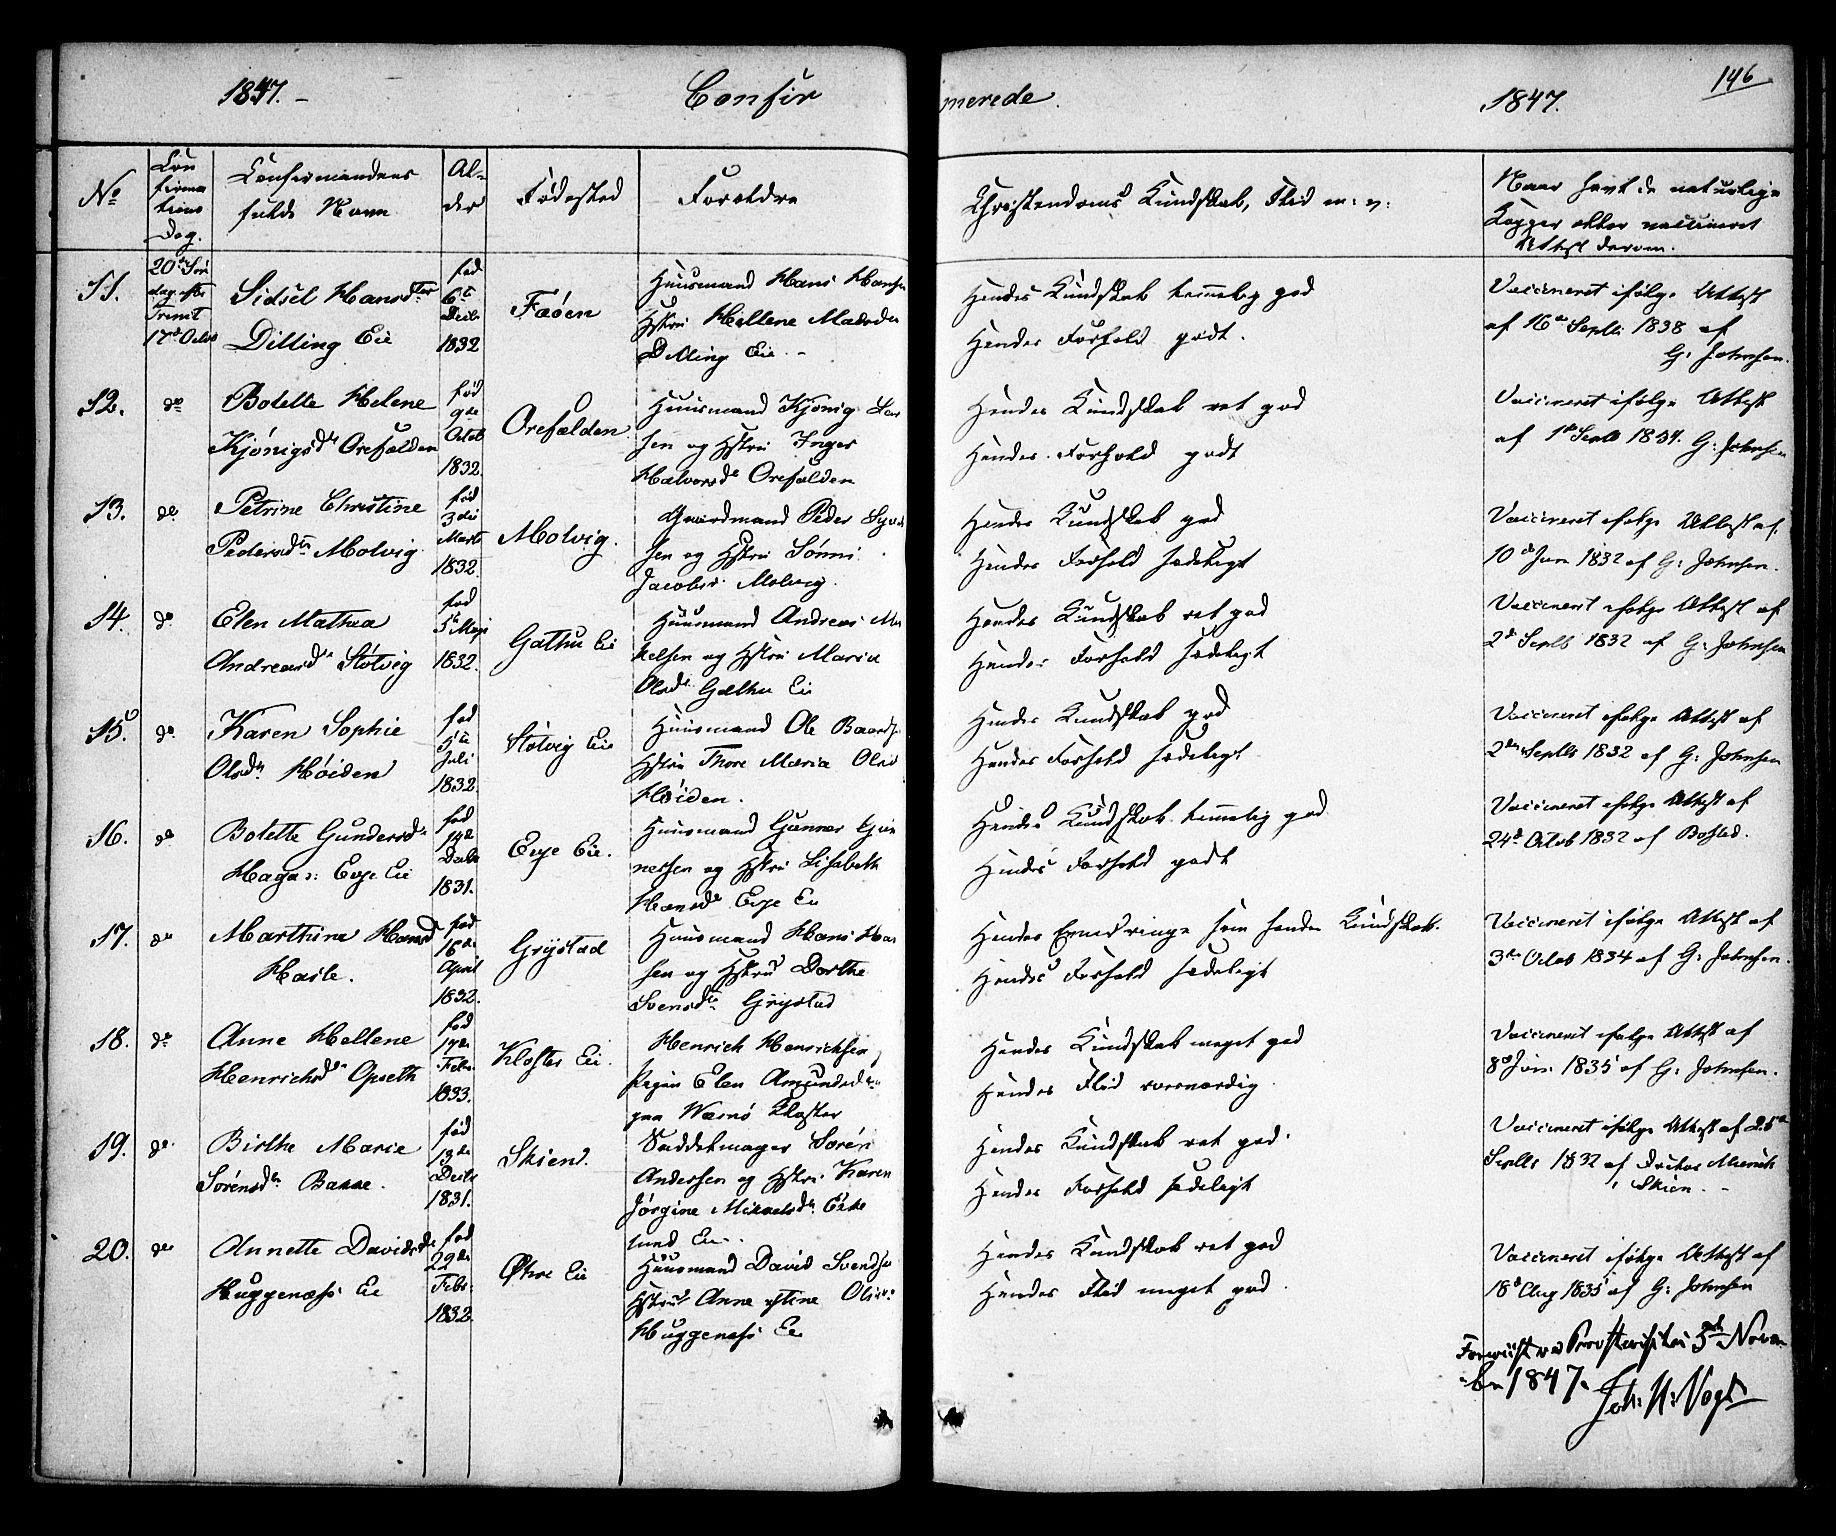 1847.
Confir
merede.
1847.
146
No
Con
firma
tions
Dag.
Confirmandens
fulde Navn
Al-
der
Fødested
Forældre
Christendoms Kundskab, Flid m: v:
Naar havt de naturlige
Kopper eller vaccineret
Attest derom.
11.
20de Søn
dag efter
Trinit
17de Octob
Sidsel Hansdtr
Dilling Eie
fød
6te
Decbr
1832
Faøen
Huusmand Hans Hansen
Hstru Hellene Madsdr
Dilling Eie. -
Hendes Kundskab temmelig god
Hendes Forhold godt.
Vaccineret ifølge Attest
af 16de Septb: 1838 af
G: Johnsen.
12.
do
Bolette Helene
Kjønigsdr Orefalden
fød
9de
Octob
1832.
Orefalden
Huusmand Kjønig Lar
sen og Hstru Inger
Halvorsdr Orefalden
Hendes Kundskab ret god
Hendes Forhold godt
Vaccineret ifølge Attest
af 1de Septb 1834. G: Johnsen
13.
do
Petrine Christine
Pedersdtr Molvig
fød
3die
Marts
1832.
Molvig.
Gaardmand Peder Syver
sen og Hstru Sønni
Jacobsdr Molvig.
Hendes Kundskab god
Hendes Forhold sædeligt
Vaccineret ifølge Attest af.
10de Juni 1832 af G: Johnsen.
14.
do
Elen Mathea
Andreasdr Støtvig
fød
5te Maji
1832.
Gathu Eie
Huusmand Andreas Mi
kelsen og Hstru Maria
Olsdr Gathu Eie
Hendes Kundskab ret god
Hendes Forhold sædeligt
Vaccineret ifølge Attest af
2de Septb 1832 af G: Johnsen
15.
do
Karen Sophie
Olsdtr Høiden
fød
5te
Juli
1832.
Støtvig Eie
Huusmand Ole Baards
Hstru Thore Maria Olsd
Høiden.
Hendes Kundskab god
Hendes Forhold sædeligt
Vaccineret ifølge Attest af
2den Septbr 1832 af G: Johnsen
16.
do
Bolette Gundersdr
Haga: Evje Eie
fød
14de
Decbr
1831.
Evje Eie.
Huusmand Gunner Gun
nersen og Hstru Lisabeth
Hansdr Evje Eie
Hendes Kundskab temmelig god
Hendes Forhold godt
Vaccineret ifølge Attest af
24de Octob 1832 af Bosted.
17.
do
Marthine Hansd
Hasle.
fød
16de
April
1832.
Grystad
Huusmand Hans Han
sen og Hstru Dorthe
Svensdtr Grystad
Hendes som hendes Kundskab.
Hendes Forhold sædeligt
Vaccineret ifølge Attest af
3die Octob 1834 af G: Johnsen.
18.
do
Anne Hellene
Henrichsdr Opseth
fød
17de
Febr.
1833.
Kloster Eie.
Henrich Henrichsen
Pigen Elen Amundsdtr
paa Værnø Kloster
Hendes Kundskab meget god
Hendes Flid
Vaccineret ifølge Attest af
8de Juni 1835 af G: Johnsen.
19.
do
Birthe Marie
Sørensdtr Bakke.
fød
13de
Decbr
1831.
Skiend.
Saddelmager Søren
Andersen og Hstru Karen
Jørgine Mikaelsdtr
lund Eie.
Hendes Kundskab ret god.
Hendes Forhold sædeligt
Vaccineret ifølge Attest af 25de
Septbr 1832 af Doctor Munich
i Skien. -
20.
do
Annette Davidsdr
Huggenæs: Eie
fød
29de
Febr.
1832.
Østre Eie
Huusmand David Svendsen
Hstru Anne Stine Olsdr
Huggenæs: Eie
Hendes Kundskab ret god
Hendes Flid meget god.
Vaccineret ifølge Attest af
18de Aug 1835 af G: Johnsen
Foreviist ved Provstevisitas 5te Novem
ber 1847.
Joh. H: Vogt